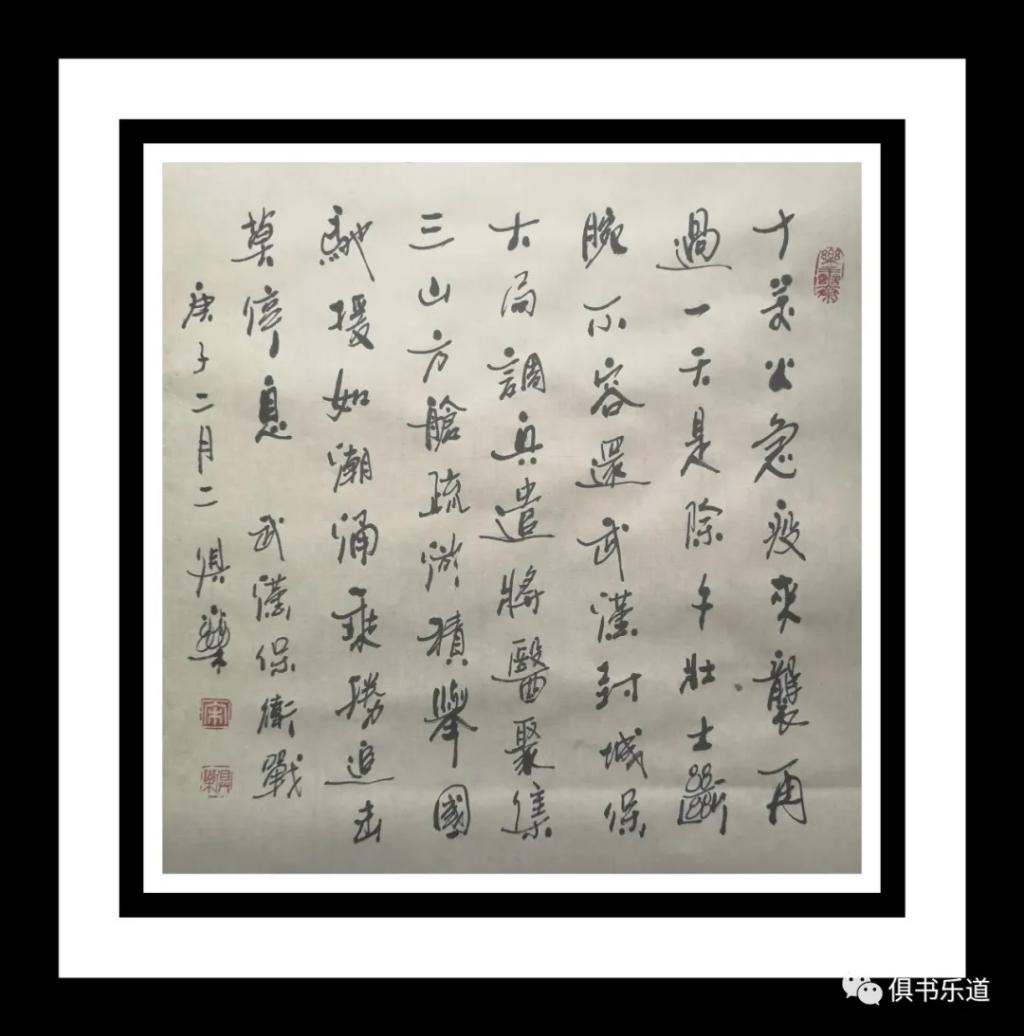 十萬火急疫來襲再
過一天是除夕壯士斷
腕不容還武漢封城保
大局調兵遣將醫聚集
三山方艙疏淤積舉國
馳援如潮涌乘勝追击
莫停息 武漢保衛戰
庚子二月二 俱樂
俱书乐道